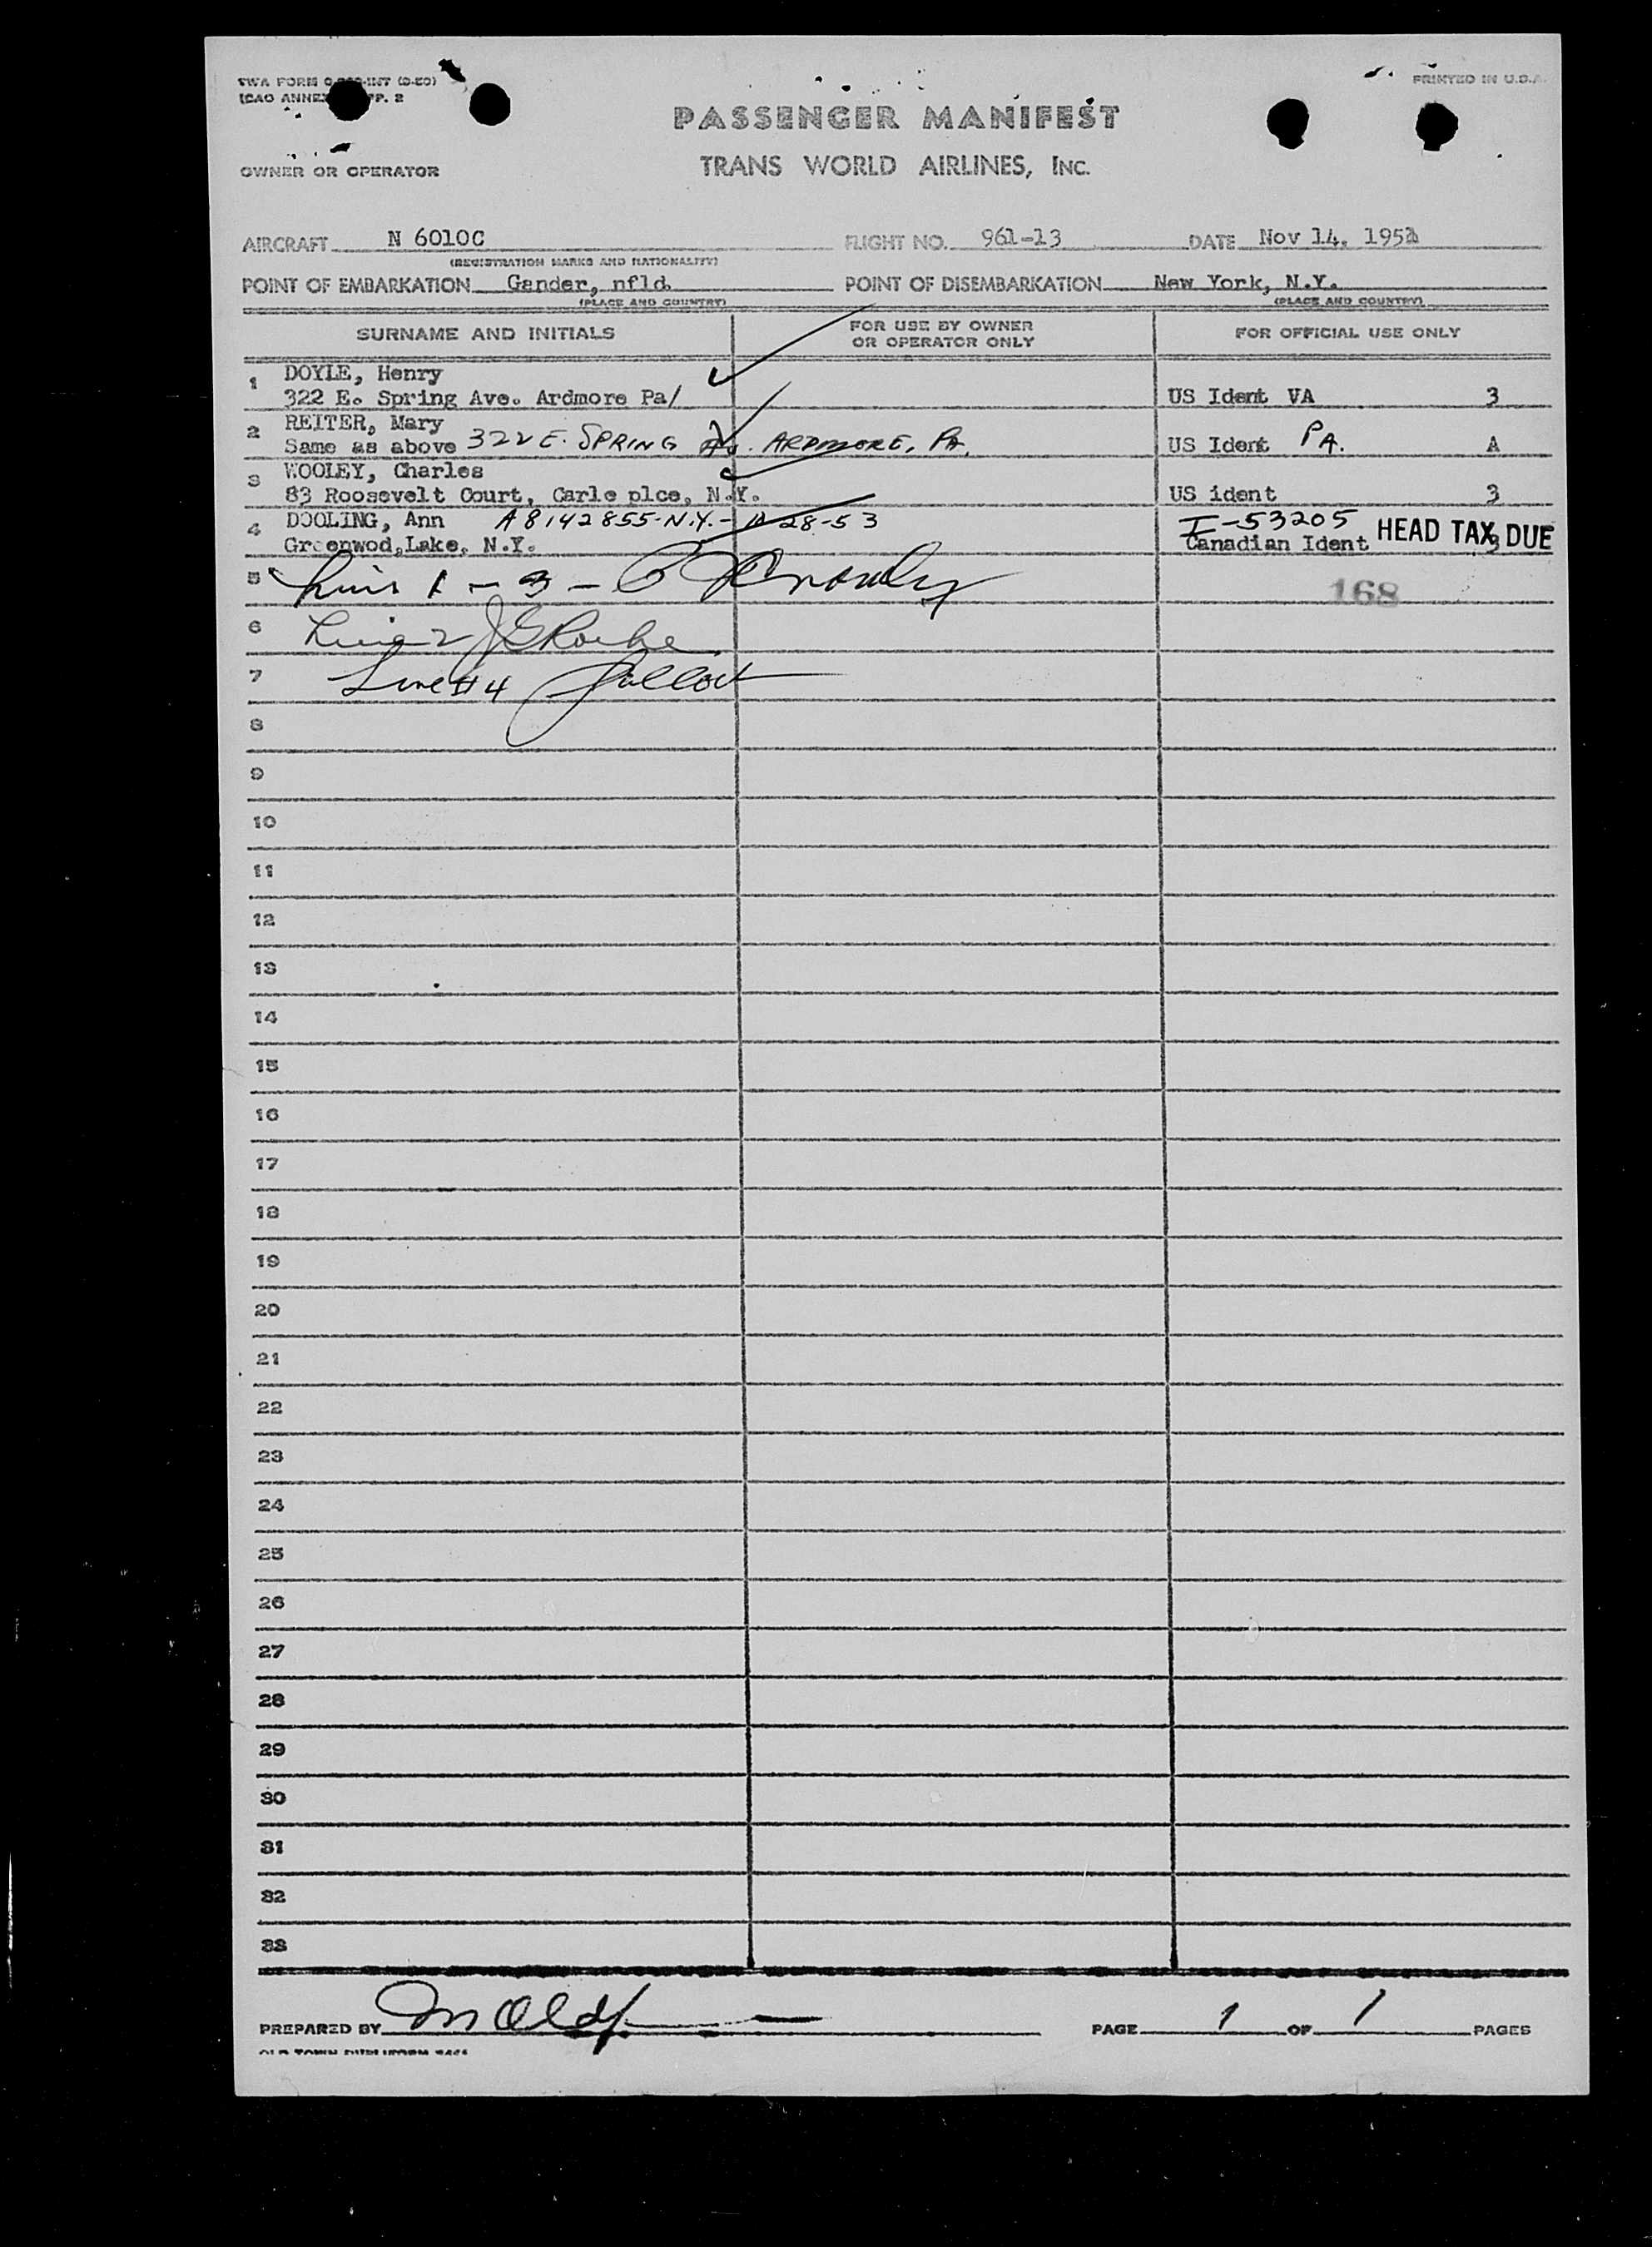 TWA FORM
PRINTED IN U.S.A.
ICAO ANNEX
PASSENGER MANIFEST
OWNER OR OPERATOR
TRANS WORLD AIRLINES, INC.
AIRCRAFT N 6010C FLIGHT NO. 961-13 DATE Nov 14, 195
(REGISTRATION MARKS AND NATIONALITY)
POINT OF EMBARKATION Gander, nfld POINT OF DISEMBARKATION New York, N.Y.
(PLACE AND COUNTRY) (PLACE AND COUNTRY)
SURNAME AND INITIALS FOR USE BY OWNER OR OPERATOR ONLY FOR OFFICIAL USE ONLY
1 DOYLE, Henry
322 E. Spring Ave. Ardmore Pa/ US Ident VA 3
2 REITER, Mary
Same as above 322 E. SPRING AV. ARDMORE, PA. US Ident PA. A
3 WOOLEY, Charles
83 Roosevelt Court, Carle plce, N.Y. US ident 3
4 DOOLING, Ann A8142855-N.Y.- 28-53 I-53205
Greenwod,Lake, N.Y. Canadian Ident 3 HEAD TAX DUE
5 1 - 3 - 168
6
7 Line #4
8
9
10
11
12
13
14
15
16
17
18
19
20
21
22
23
24
25
26
27
28
29
30
31
32
33
PREPARED BY PAGE 1 OF 1 PAGES